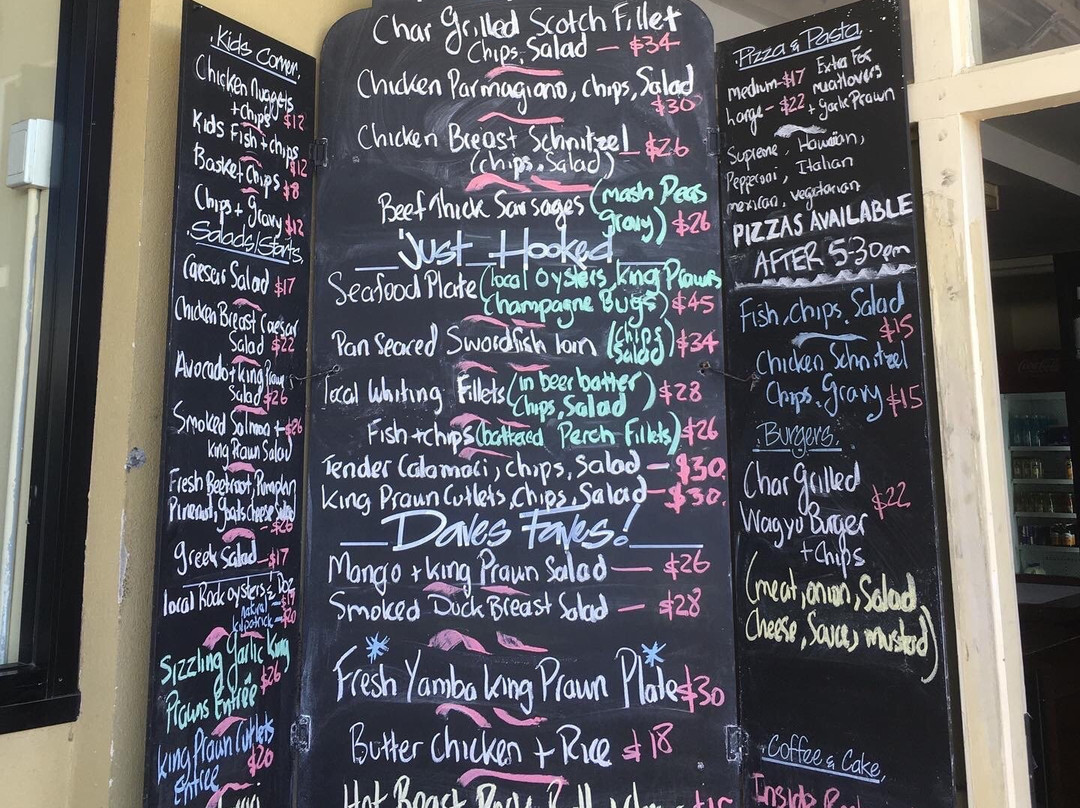 Kids Corner.
Chicken Nuggets
+ chips $12
Kids Fish + chips
$12
Basket Chips $8
Chips + Gravy $12
Salads/Starts
Caesar Salad $17
Chicken Breast Caesar
Salad $22
Avocado + king Prawn
Salad $26
Smoked Salmon + $26
king Prawn Salad
Fresh Beetroot, Pumpkin
Pinenut, goats cheese Salad
- $26
Greek Salad - $17
Local Rock oysters ½ Doz
natural - $19
kilpatrick - $20
Sizzling Garlic King
Prawns Entrée $26
King Prawn Cutlets
Entree $20
Char Grilled Scotch Fillet
Chips, Salad - $34
Chicken Parmagiano, chips, Salad
$30
Chicken Breast Schnitzel $26
(chips, Salad)
Beef Thick Sausages (mash Peas
gravy) $26
Just Hooked
Seafood Plate (local oysters, king Prawns
Champagne Bugs) $45
Pan Seared Swordfish Loin (chips
Salad) $34
Local Whiting Fillets (in beer batter
Chips, Salad) $28
Fish + chips (battered Perch Fillets) $26
Tender Calamari, chips, Salad - $30
King Prawn Cutlets, Chips, Salad - $30
Daves Faves!
Mango + king Prawn Salad - $26
Smoked Duck Breast Salad - $28
Fresh Yamba King Prawn Plate $30
Butter Chicken + Rice $18
Hot Roast Pork Roll
Pizza & Pasta
medium - $17 Extra For
Large - $22 meatlovers
+ garlic Prawn
Supreme, Hawaiian,
Pepperoni, Italian
mexican, vegetarian
PIZZAS AVAILABLE
AFTER 5-30pm
Fish, chips, Salad
$15
Chicken Schnitzel
Chips, Gravy $15
Burgers.
Char Grilled
Wagyu Burger $22
+ chips
(meat, onion, Salad
Cheese, Sauce, mustard)
Coffee & Cake.
Inside